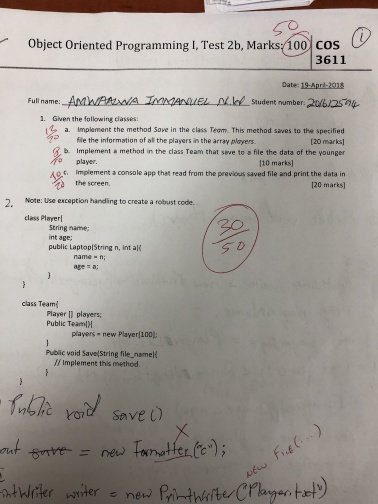 50
①
Object Oriented Programming I, Test 2b, Marks: 100 COS
3611
Date: 19-April-2018
Full name: AMWAALWA IMMANUEL NW Student number: 201612594
1. Given the following classes:
12/20 a. Implement the method Save in the class Team. This method saves to the specified
file the information of all the players in the array players. [20 marks]
8/10 b. Implement a method in the class Team that save to a file the data of the younger
player. [10 marks]
10/20 c. Implement a console app that read from the previous saved file and print the data in
the screen. [20 marks]
2. Note: Use exception handling to create a robust code.
30/50
class Player{
String name;
int age;
public Laptop(String n, int a){
name = n;
age = a;
}
}
class Team{
Player [] players;
Public Team(){
players = new Player[100];
}
Public void Save(String file_name){
// Implement this method.
}
}
Public void save()
X
out save = new Formatter("c");
new File(...)
writer = new PrintWriter("Player.txt")